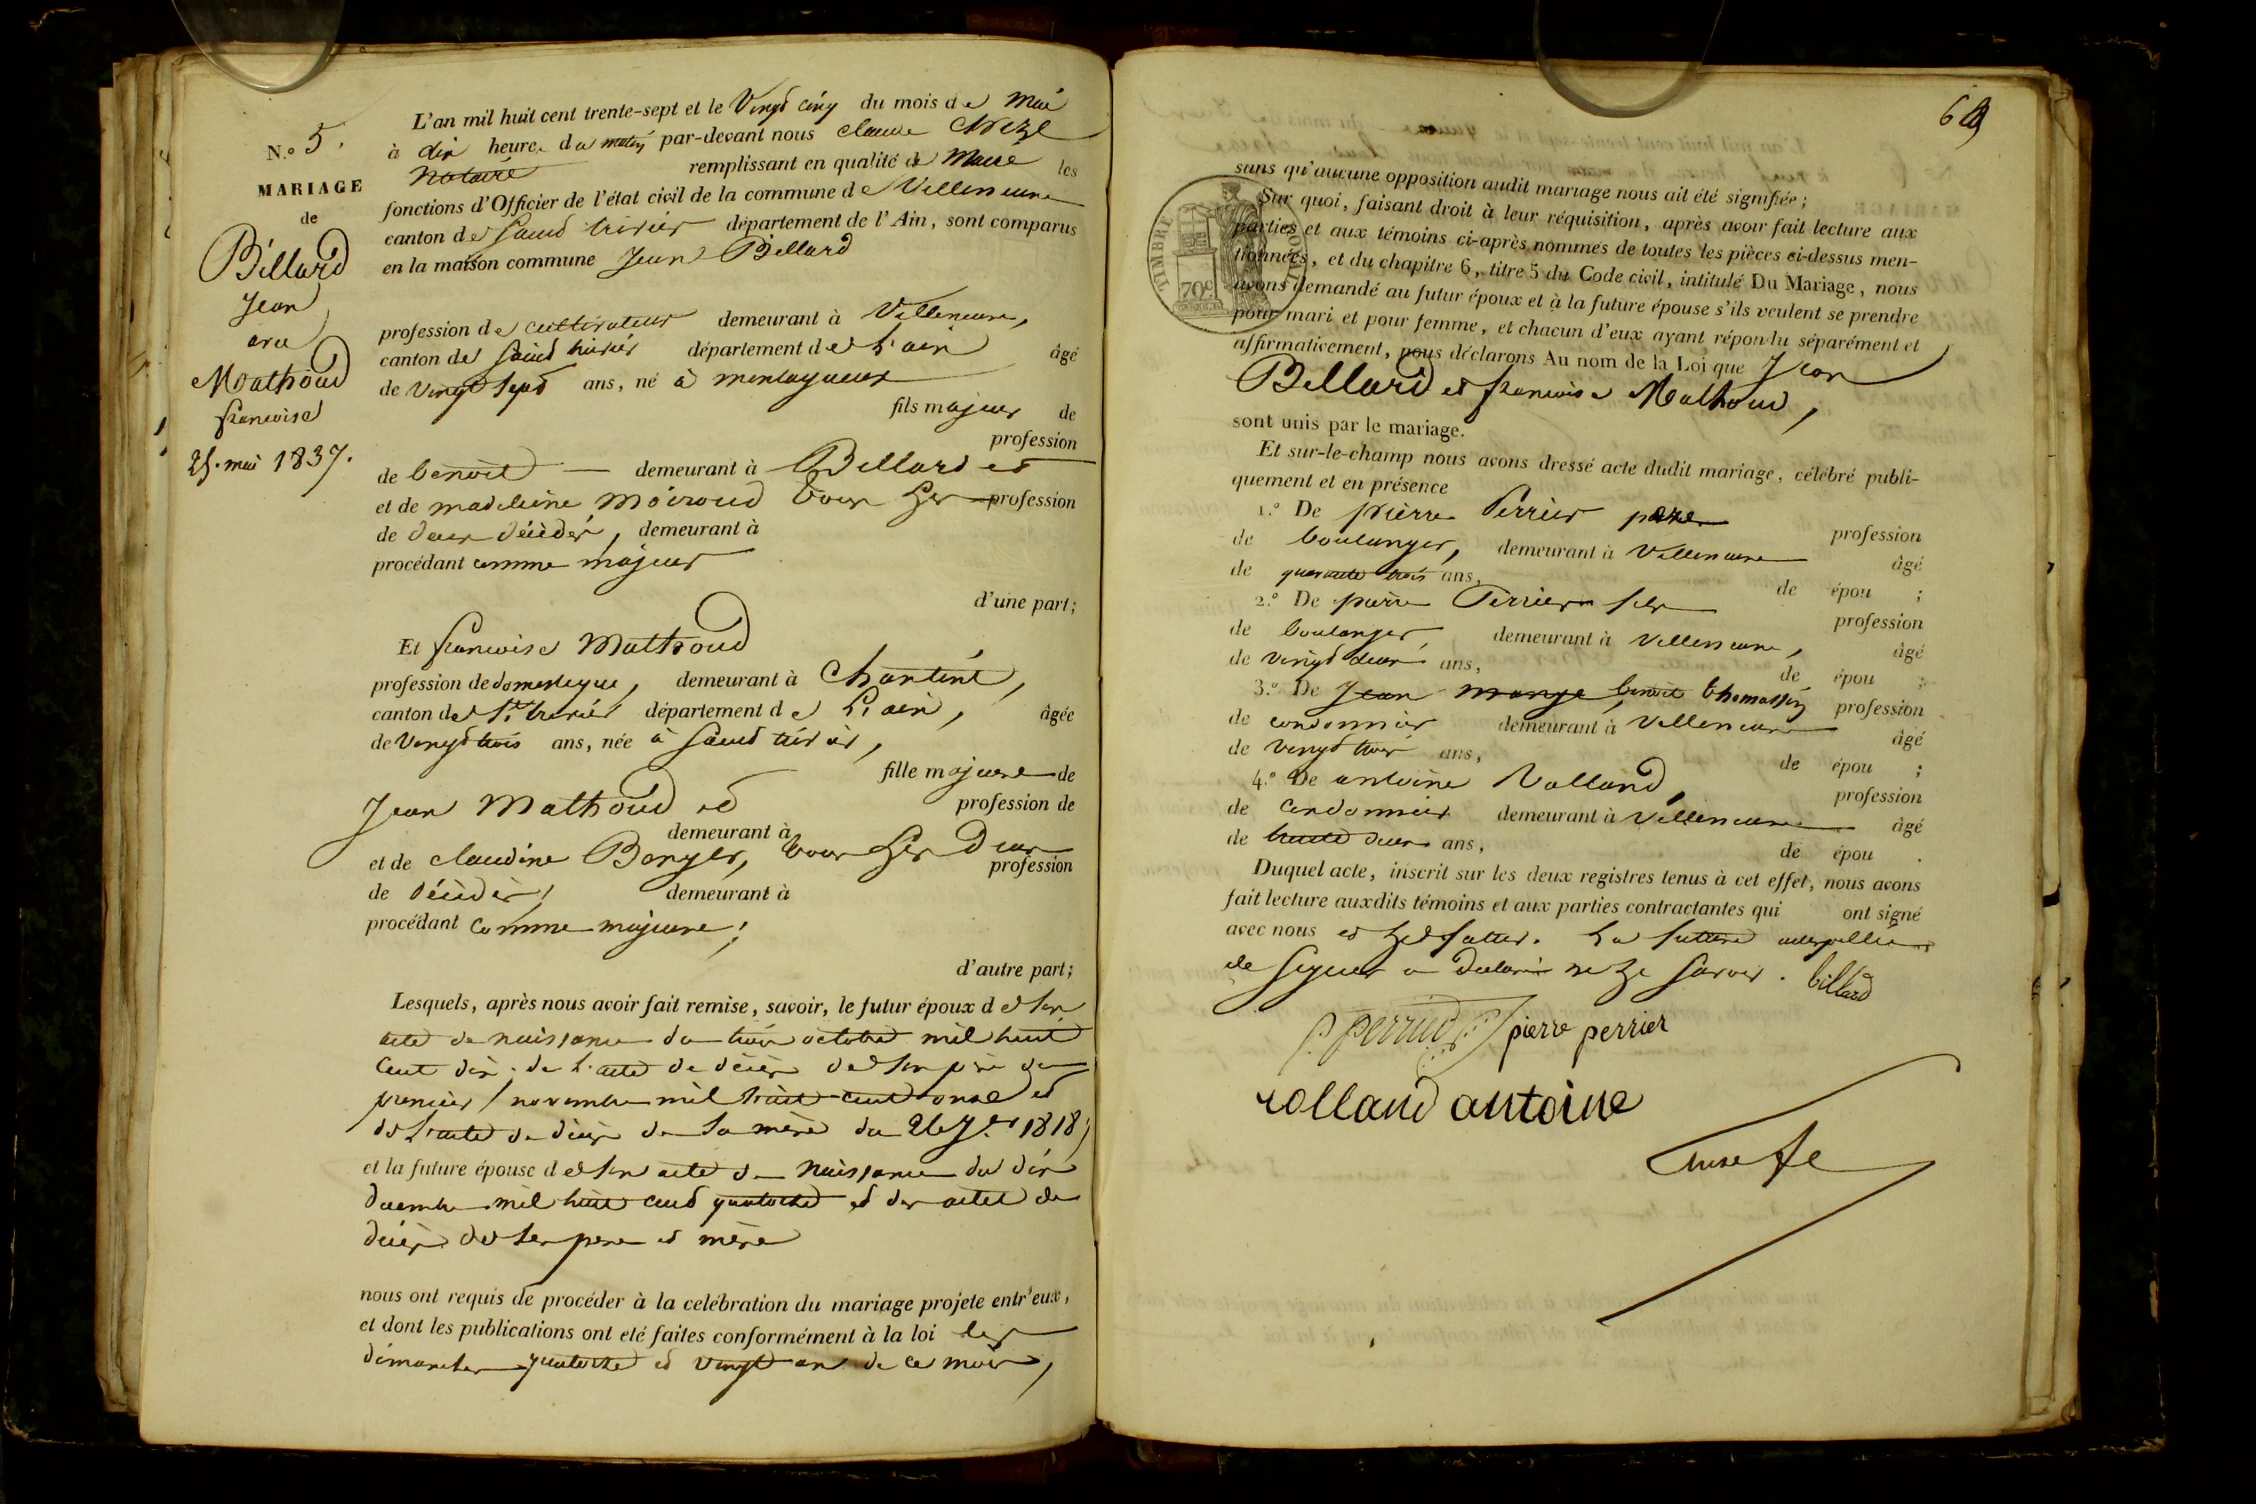 N.o 5.
MARIAGE
de
Billard
Jean
avec
Mathoud
francoise
25. mai 1837.
L'an mil huit cent trente-sept et le Vingt cinq du mois de Mai
à dix heure du matin par-devant nous claude
Notaire remplissant en qualité de Maire les
fonctions d'Officier de l'état civil de la commune de Villeneuve
canton de Saint trivier département de l'Ain, sont comparus
en la maison commune Jean Billard
profession de cultivateur demeurant à Villeneuve,
canton de Saint trivier département de L'ain âgé
de Vingt sept ans, né à montagneux
fils majeur de
profession
de benoit — demeurant à Billard et
et de madeleine Moiroud tous les profession
de deux décédés, demeurant à
procédant comme majeur
d'une part;
Et francoise Mathoud
profession de domestique, demeurant à Chanteins,
canton de St. trivier département de L'ain, âgée
de Vingt trois ans, née à Saint trivier,
fille majeure de
Jean Mathoud et profession de
demeurant à
et de claudine Borger, tous les deux
profession
de décédés, demeurant à
procédant comme majeure;
d'autre part;
Lesquels, après nous avoir fait remise, savoir, le futur époux de son
acte de naissance du trois octobre mil huit
cent dix; de L'acte de décès de son père du
premier novembre mil huit cent onze et
de L'acte de décès de sa mère du 26 1818;
et la future épouse de son acte de Naissance du dix
décembre mil huit cent quatorze et des actes de
décès de ses pere et mère
nous ont requis de procéder à la celébration du mariage projete entr'eux,
et dont les publications ont eté faites conformément à la loi les
dimanches quatorze et vingt un de ce mois,
sans qu'aucune opposition audit mariage nous ait été signifiée;
TIMBRE ROYAL
70 c
Sur quoi, faisant droit à leur réquisition, après avoir fait lecture aux
parties et aux témoins ci-après nommés de toutes les pièces ci-dessus men-
tionnées, et du chapitre 6, titre 5 du Code civil, intitulé Du Mariage, nous
avons demandé au futur époux et à la future épouse s'ils veulent se prendre
pour mari et pour femme, et chacun d'eux ayant répondu séparément et
affirmativement, nous déclarons Au nom de la Loi que Jean
Billard et francoise Mathoud,
sont unis par le mariage.
Et sur-le-champ nous avons dressé acte dudit mariage, célébré publi-
quement et en présence
1.o De pierre Perrier pere profession
de boulanger, demeurant à Villeneuve âgé
de quarante trois ans, de épou ;
2.o De pierre Perrier fils profession
de boulanger demeurant à Villeneuve, âgé
de vingt deux ans, de épou ;
3.o De Jean benoit thomassin profession
de cordonnier demeurant à Villeneuve âgé
de vingt trois ans, de épou ;
4.o De antoine Rolland, profession
de cordonnier demeurant à Villeneuve âgé
de trente deux ans, de épou .
Duquel acte, inscrit sur les deux registres tenus à cet effet, nous avons
fait lecture auxdits témoins et aux parties contractantes qui ont signé
avec nous et La future interpellée
de signer a déclaré ne le savoir. billard
P. perrier pierre perrier
rolland antoine